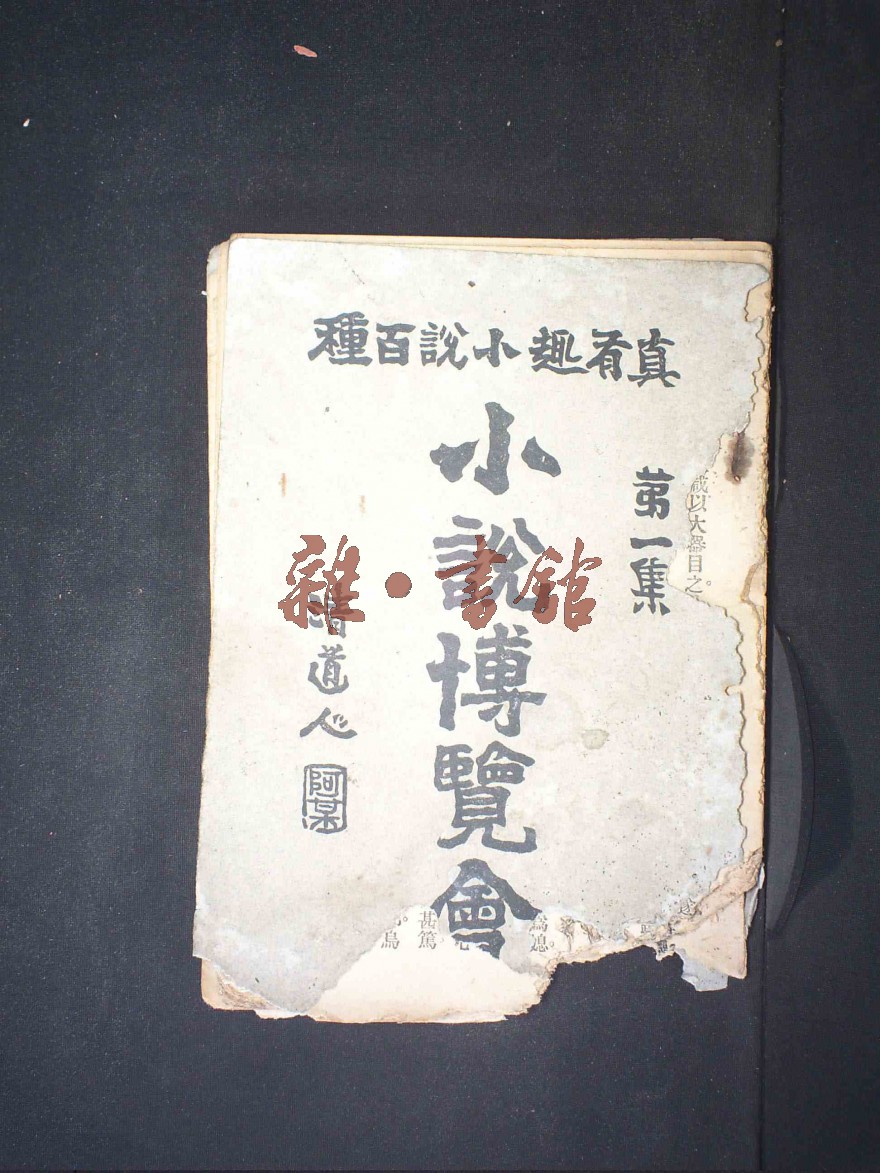 真有趣小說百種
第一集
小說博覽會
道人
阿某
雜·書館
歲以大器目之。
甚篤